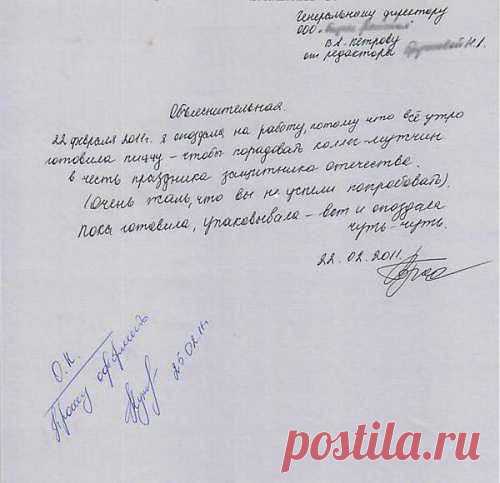 Генеральному директору
ООО "
В.А. Петрову
от редактора Н.А.
Объяснительная.
22 февраля 2011г. я опоздала на работу, потому что всё утро
готовила пиццу – чтобы порадовать коллег-мужчин
в честь праздника защитника отечества.
(Очень жаль, что вы не успели попробовать).
Пока готовила, упаковывала – вот и опоздала
чуть-чуть.
22.02.2011.
О.К.
Прошу оформить
25.02.11г.
postila.ru